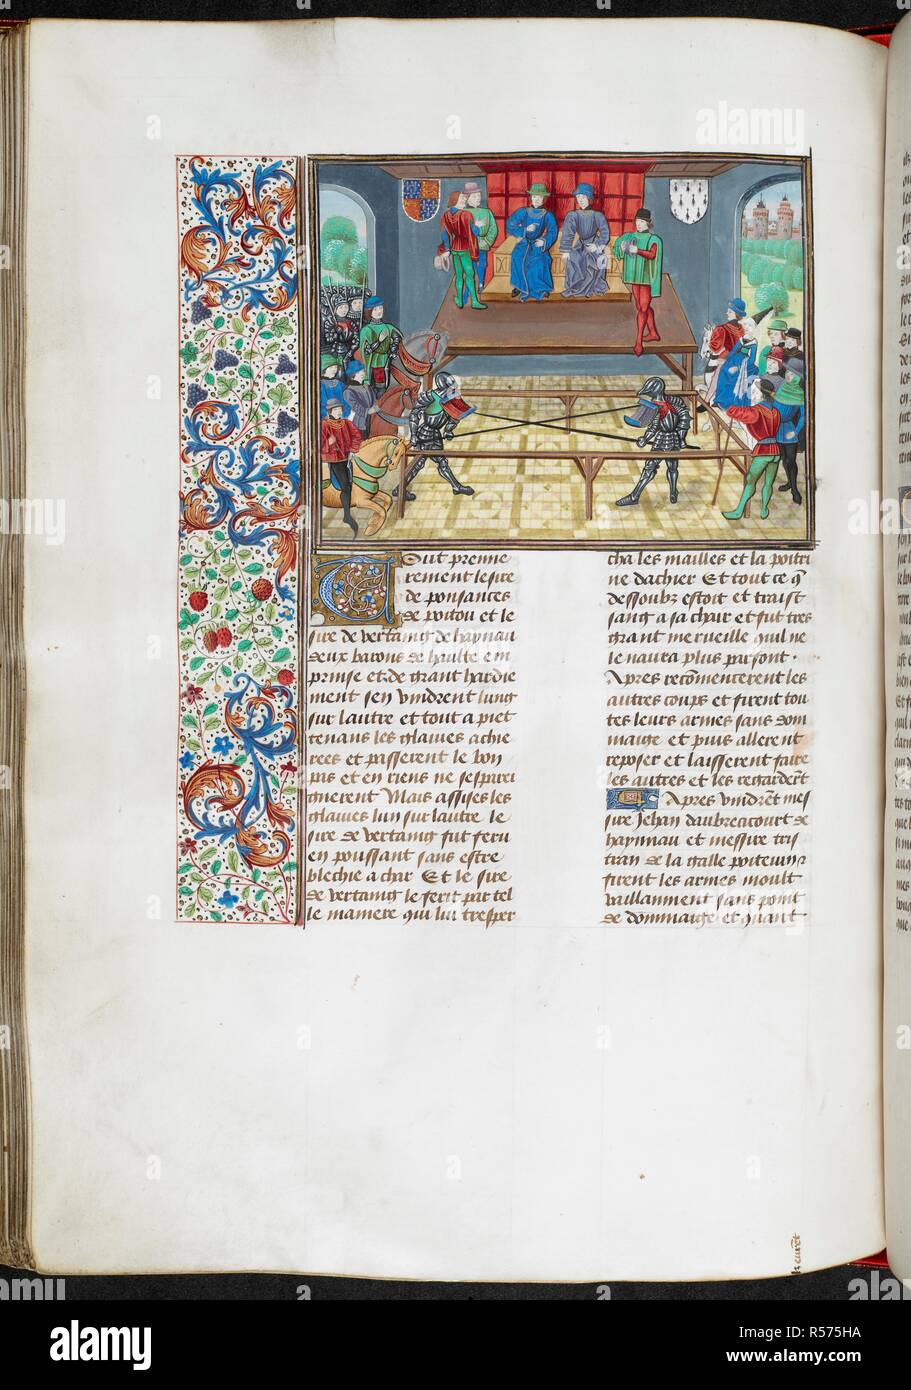 Tout premie
rement le sire
de ponsances
de poitou et le
sire de vertaing de haynau
deux barons de haulte em
prinse et de grant hardie
ment sen vindrent lung
sur lautre et tout a piet
tenans les glaives achie
rees et passerent le bon
pas et en riens ne sespari
gnerent Mais assises les
glaives lun sur lautre le
sire de vertaing fut feru
en poussant sans estre
blechie a char Et le sire
de vertaing le ferit par tel
le maniere qui lui tresper
cha les mailles et la poitri
ne dachier Et tout ce q̄
dessoubz estoit et traist
sang a sa chair et fut tres
grant merveille quil ne
le navra plus parfont .
Apres recōmencerent les
autres coups et firent tou
tes leurs armes sans dom
maige et puis allerent
reposer et laisserent faire
les autres et les regarderēt
Apres vindrēt mes
sire Jehan daubrecicourt de
haynnau et messire tris
tran de la galle poitevin
firent les armes moult
vaillanment sans point
de dommaige et quant
alamy
Image ID: R575HA
www.alamy.com